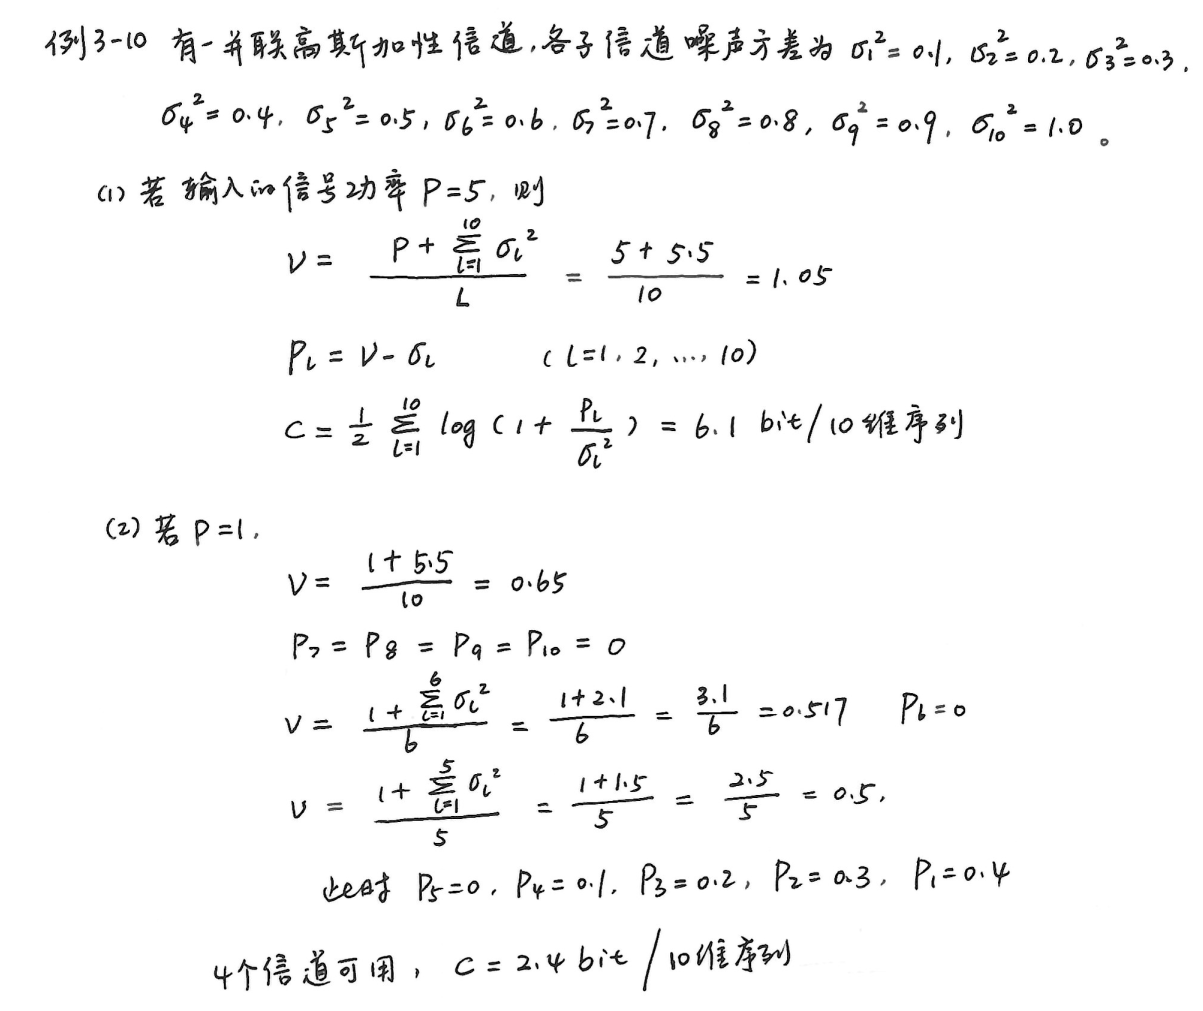 例3-10 有一并联高斯加性信道,各子信道噪声方差为 σ₁²=0.1, σ₂²=0.2, σ₃²=0.3,
σ₄²=0.4, σ₅²=0.5, σ₆²=0.6, σ₇²=0.7, σ₈²=0.8, σ₉²=0.9, σ₁₀²=1.0。
(1) 若输入的信号功率 P=5, 则
ν = (P + ∑_{l=1}^{10} σ_l²) / L = (5 + 5.5) / 10 = 1.05
P_l = ν - σ_l (l=1, 2, ..., 10)
C = 1/2 ∑_{l=1}^{10} log(1 + P_l / σ_l²) = 6.1 bit/10维序列
(2) 若 P=1,
ν = (1 + 5.5) / 10 = 0.65
P₇ = P₈ = P₉ = P₁₀ = 0
ν = (1 + ∑_{l=1}^{6} σ_l²) / 6 = (1+2.1) / 6 = 3.1 / 6 = 0.517 P₆=0
ν = (1 + ∑_{l=1}^{5} σ_l²) / 5 = (1+1.5) / 5 = 2.5 / 5 = 0.5,
此时 P₅=0, P₄=0.1, P₃=0.2, P₂=0.3, P₁=0.4
4个信道可用, C = 2.4 bit/10维序列